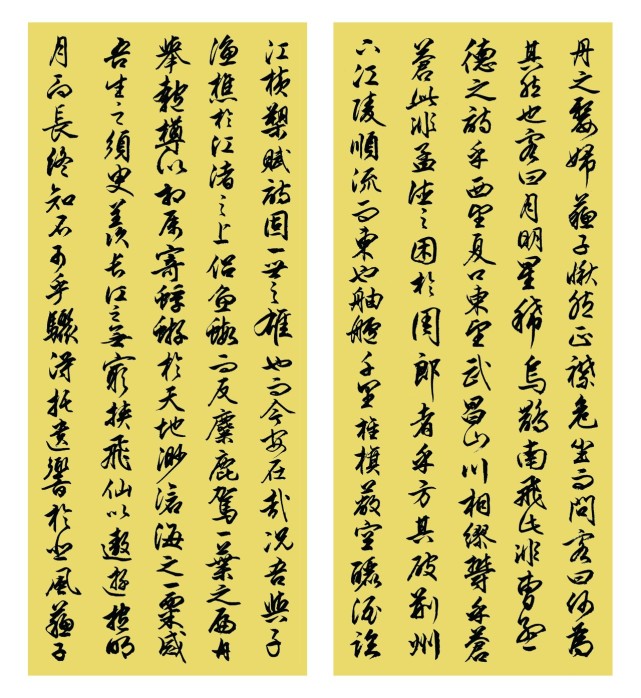 舟之嫠婦蘇子愀然正襟危坐而問客曰何為
其然也客曰月明星稀烏鵲南飛此非曹孟
德之詩乎西望夏口東望武昌山川相繆鬱乎蒼
蒼此非孟德之困於周郎者乎方其破荊州
下江陵順流而東也舳艫千里旌旗蔽空釃酒臨
江橫槊賦詩固一世之雄也而今安在哉況吾與子
漁樵於江渚之上侶魚蝦而友麋鹿駕一葉之扁舟
舉匏樽以相屬寄蜉蝣於天地渺滄海之一粟哀
吾生之須臾羨長江之無窮挾飛仙以遨遊抱明
月而長終知不可乎驟得托遺響於悲風蘇子